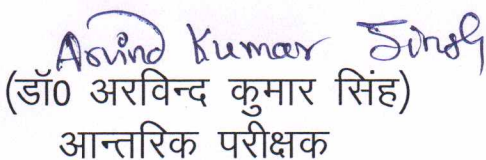 Arvind Kumar Singh
(डॉ0 अरविन्द कुमार सिंह)
आन्तरिक परीक्षक